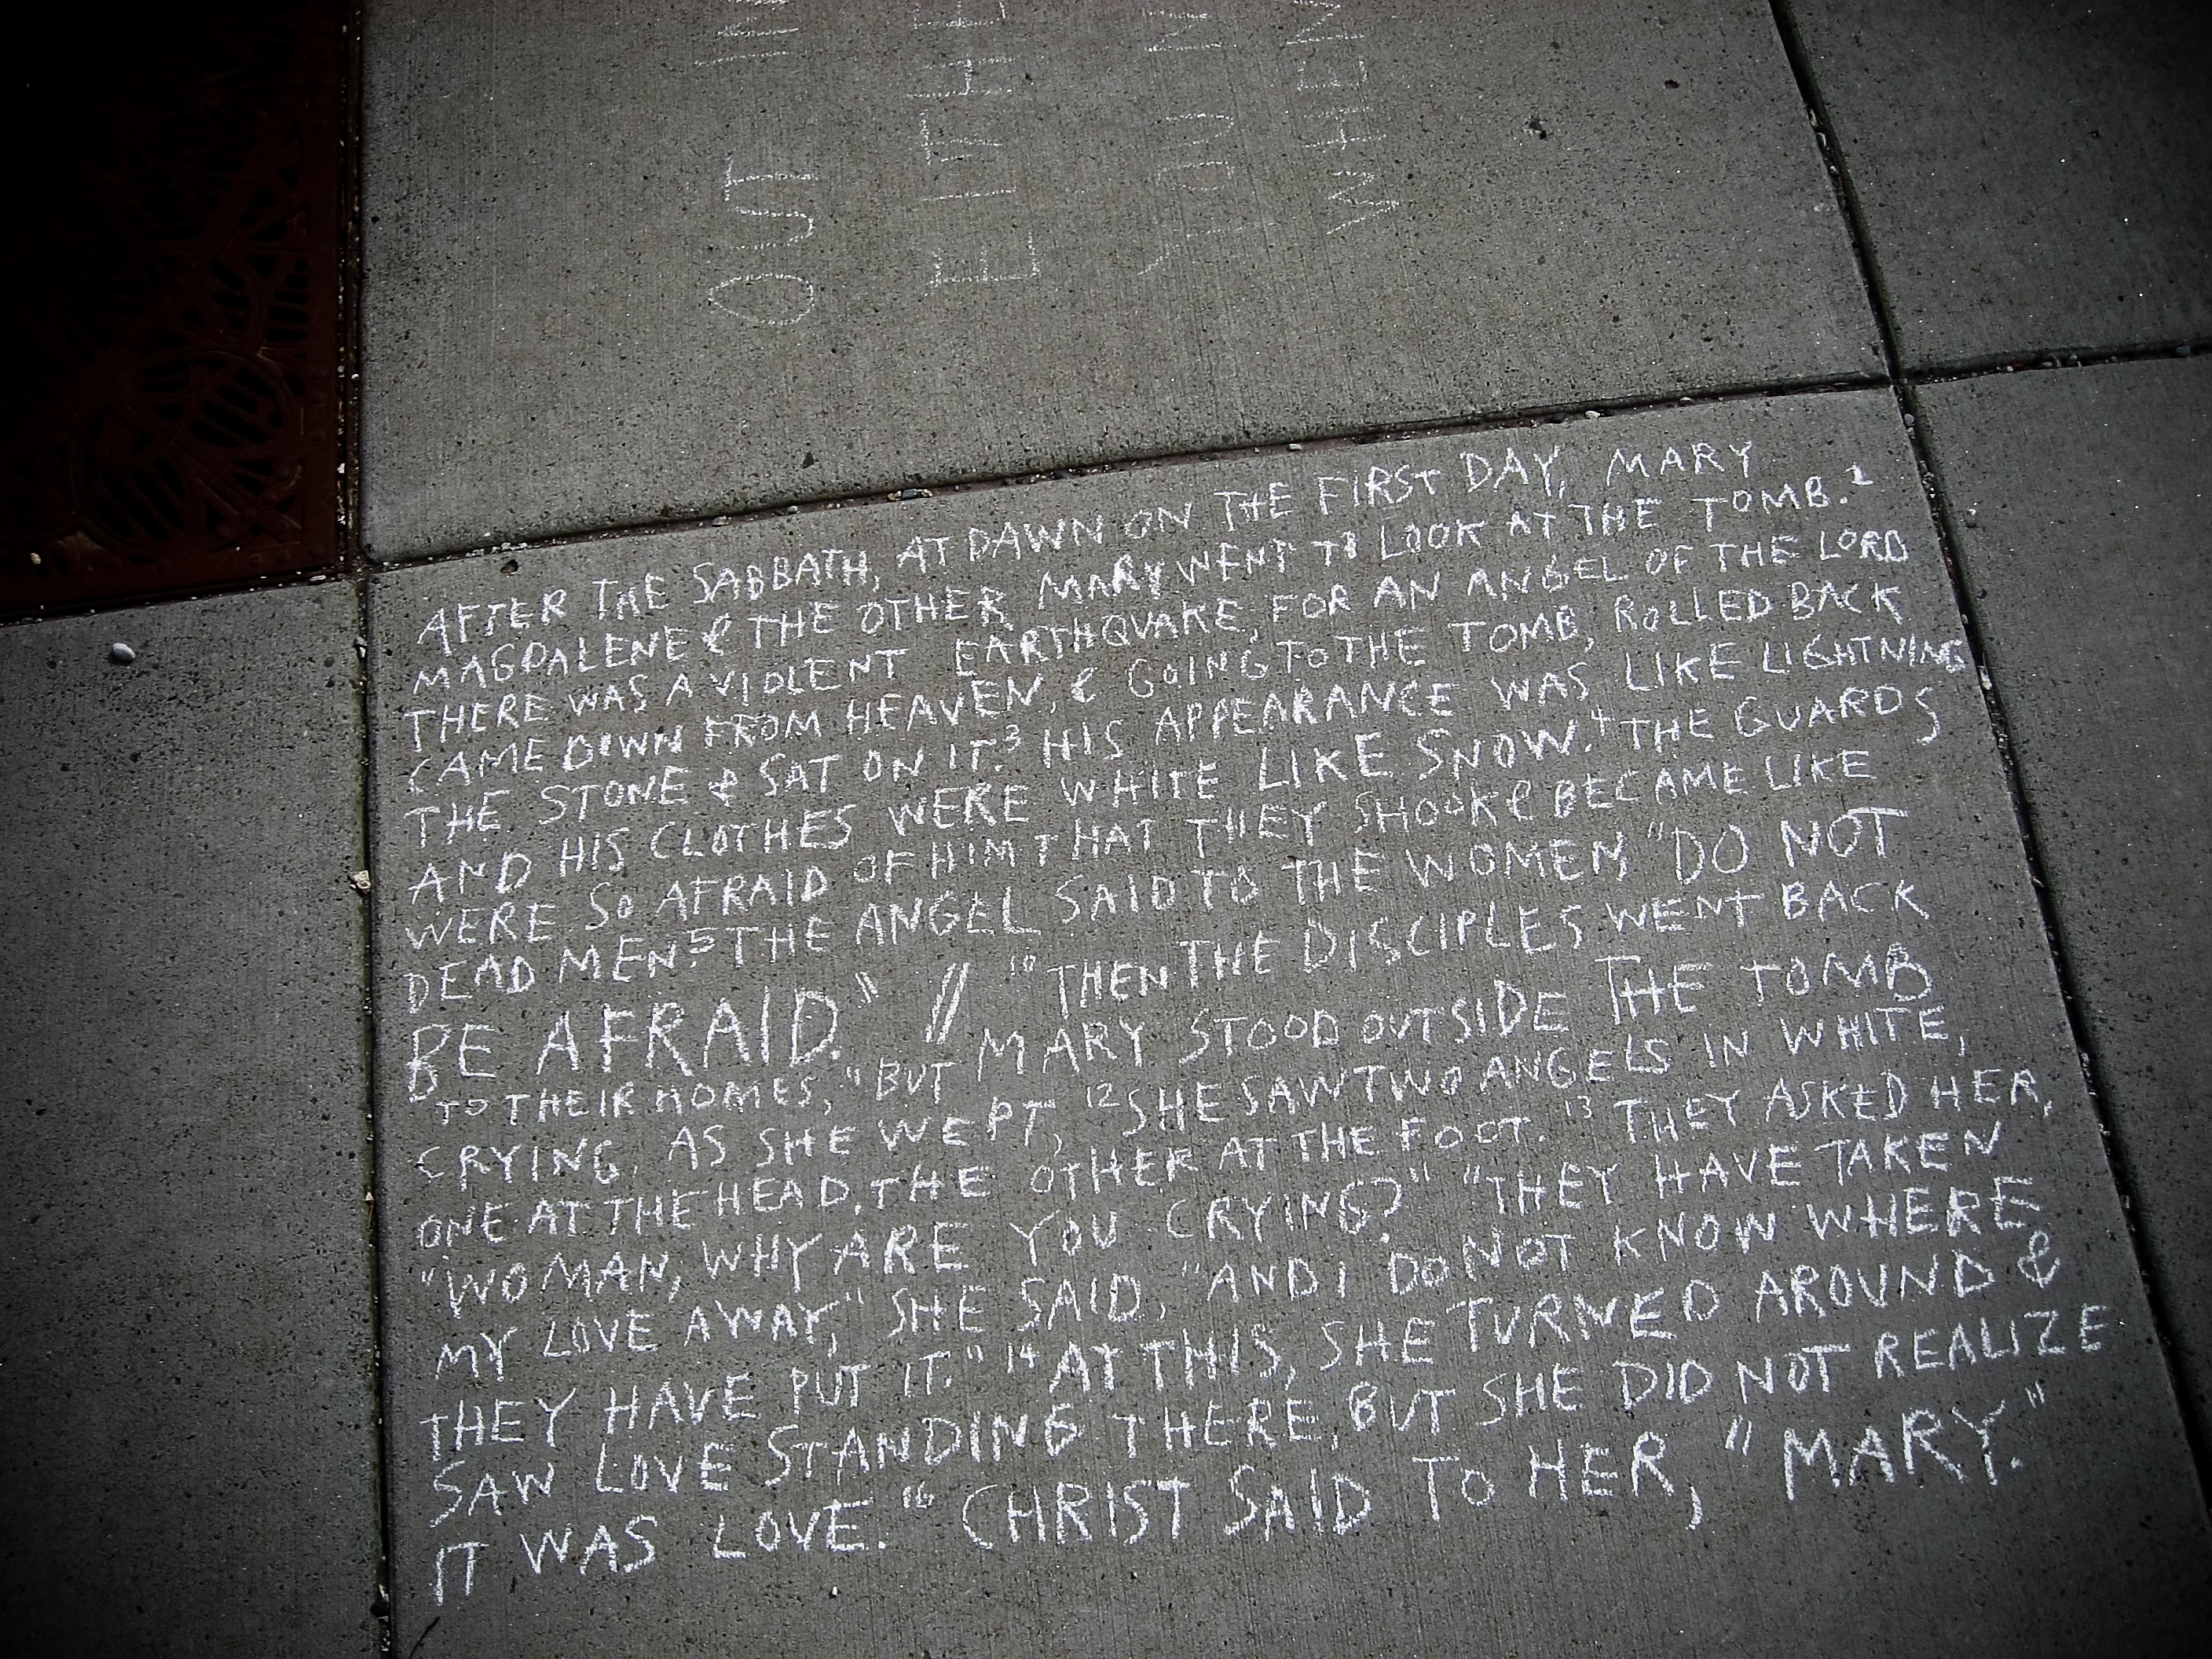 AFTER THE SABBATH, AT DAWN ON THE FIRST DAY, MARY
MAGDALENE & THE OTHER MARY WENT TO LOOK AT THE TOMB. 2
THERE WAS A VIOLENT EARTHQUAKE, FOR AN ANGEL OF THE LORD
CAME DOWN FROM HEAVEN, & GOING TO THE TOMB, ROLLED BACK
THE STONE & SAT ON IT. 3 HIS APPEARANCE WAS LIKE LIGHTNING
AND HIS CLOTHES WERE WHITE LIKE SNOW. 4 THE GUARDS
WERE SO AFRAID OF HIM THAT THEY SHOOK & BECAME LIKE
DEAD MEN. 5 THE ANGEL SAID TO THE WOMEN, "DO NOT
BE AFRAID." // 10 THEN THE DISCIPLES WENT BACK
TO THEIR HOMES, 11 BUT MARY STOOD OUTSIDE THE TOMB
CRYING. AS SHE WEPT, 12 SHE SAW TWO ANGELS IN WHITE,
ONE AT THE HEAD, THE OTHER AT THE FOOT. 13 THEY ASKED HER,
"WOMAN, WHY ARE YOU CRYING?" "THEY HAVE TAKEN
MY LOVE AWAY," SHE SAID, "AND I DO NOT KNOW WHERE
THEY HAVE PUT IT." 14 AT THIS, SHE TURNED AROUND &
SAW LOVE STANDING THERE, BUT SHE DID NOT REALIZE
IT WAS LOVE. 16 CHRIST SAID TO HER, "MARY."